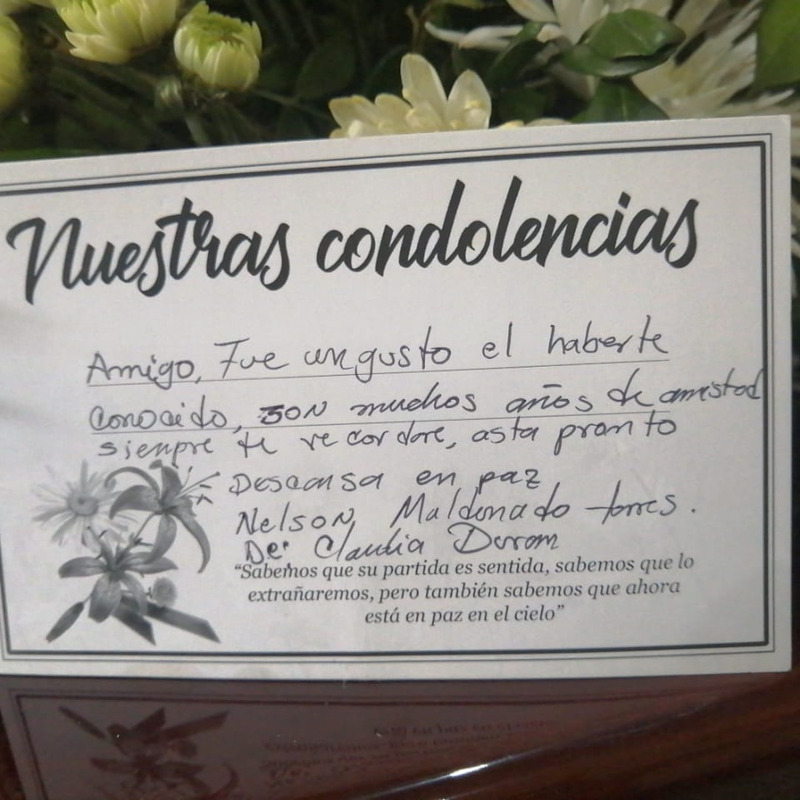 Nuestras condolencias
Amigo, Fue un gusto el haberte
conocido, son muchos años de amistad
siempre te recordare, asta pronto
Descansa en paz
Nelson Maldonado torres.
De: Claudia Duran
"Sabemos que su partida es sentida, sabemos que lo
extrañaremos, pero también sabemos que ahora
está en paz en el cielo"